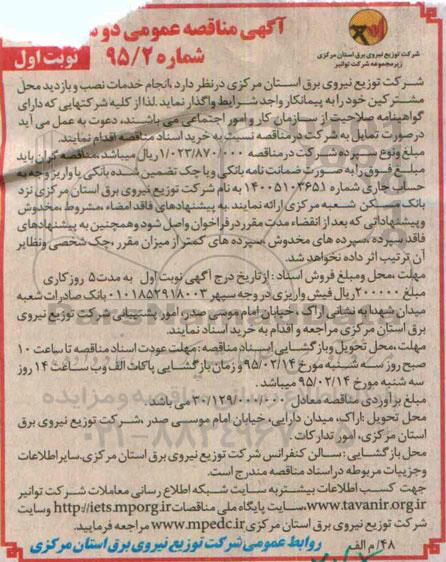 آگهی مناقصه عمومی دو س
شماره ۹۵/۲
نوبت اول
شرکت توزیع نیروی برق استان مرکزی
زیرمجموعه شرکت توانیر
شرکت توزیع نیروی برق استان مرکزی درنظر دارد ،انجام خدمات نصب و بازدید محل
مشترکین خود را به پیمانکار واجد شرایط واگذار نماید .لذا از کلیه شرکتهایی که دارای
گواهینامه صلاحیت از سازمان کار و امور اجتماعی می باشند، دعوت به عمل می آید
درصورت تمایل به شرکت در مناقصه نسبت به خرید اسناد مناقصه اقدام نمایند.
مبلغ ونوع سپرده شرکت در مناقصه ۱/۰۲۳/۸۷۰/۰۰۰ ریال میباشد،مناقصه گران باید
مبلغ فوق را به صورت ضمانت نامه بانکی ویا چک تضمین شده بانکی یا واریز وجه به
حساب جاری شماره ۱۴۰۰۵۱۰۳۶۵۱ به نام شرکت توزیع نیروی برق استان مرکزی نزد
بانک مسکن شعبه مرکزی ارائه نمایند .به پیشنهادهای فاقد امضاء ،مشروط ،مخدوش
وپیشنهاداتی که بعد از انقضاء مدت مقرر در فراخوان واصل شود وهمچنین به پیشنهادهای
فاقد سپرده ،سپرده های مخدوش ،سپرده های کمتر از میزان مقرر ،چک شخصی ونظایر
آن ترتیب اثر داده نخواهد شد.
مهلت ،محل ومبلغ فروش اسناد : از تاریخ درج آگهی نوبت اول به مدت ۵ روز کاری
مبلغ ۲۰۰۰۰۰ ریال فیش واریزی در وجه سپهر ۰۱۰۱۸۵۲۹۱۸۰۰۳ بانک صادرات شعبه
میدان شهدا به نشانی اراک ، خیابان امام موسی صدر، امور پشتیبانی شرکت توزیع نیروی
برق استان مرکزی مراجعه و اقدام به خرید اسناد نمایند.
مهلت ،محل تحویل وبازگشایی اسناد مناقصه : مهلت عودت اسناد مناقصه تا ساعت ۱۰
صبح روز سه شنبه مورخ ۹۵/۰۲/۱۴ و زمان بازگشایی پاکات الف وب ساعت ۱۴ روز
سه شنبه مورخ ۹۵/۰۲/۱۴ میباشد .
مبلغ برآوردی مناقصه معادل ۳۰/۱۲۹/۰۰۰/۰۰۰ می باشد.
محل تحویل :اراک، میدان دارایی، خیابان امام موسی صدر ،شرکت توزیع نیروی برق
استان مرکزی، امور تدارکات
محل بازگشایی : سالن کنفرانس شرکت توزیع نیروی برق استان مرکزی.سایر اطلاعات
وجزییات مربوطه در اسناد مناقصه مندرج است.
جهت کسب اطلاعات بیشتر به سایت شبکه اطلاع رسانی معاملات شرکت توانیر
www.tavanir.org.ir،سایت پایگاه ملی مناقصات http://iets.mporg.ir وسایت
شرکت توزیع نیروی برق استان مرکزی www.mpedc.ir مراجعه فرمایید.
۴۸/م الف
روابط عمومی شرکت توزیع نیروی برق استان مرکزی